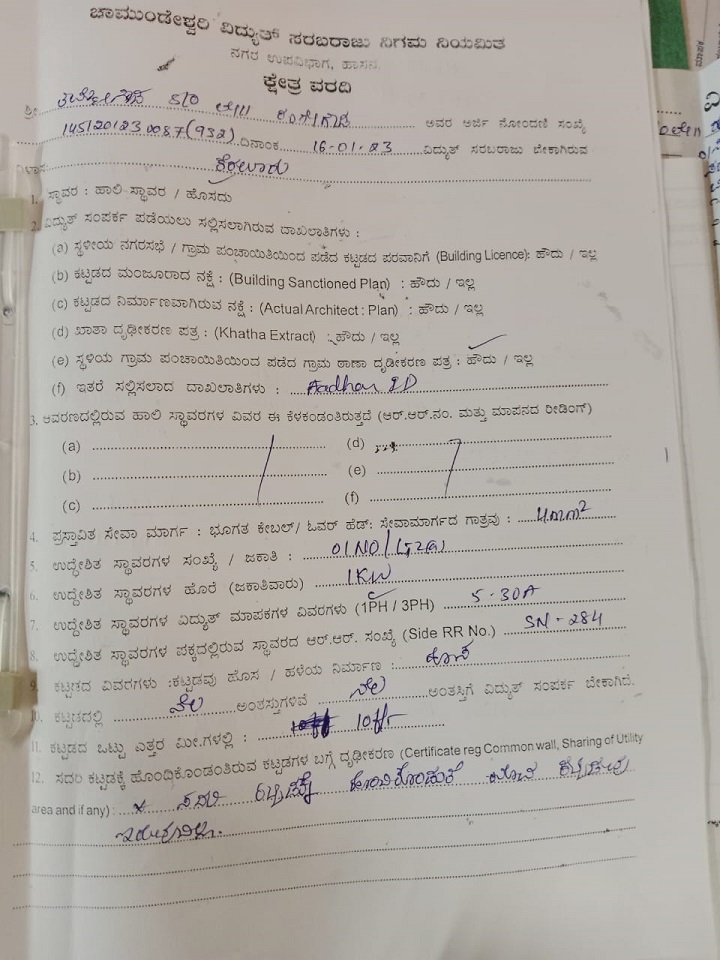 ಚಾಮುಂಡೇಶ್ವರಿ ವಿದ್ಯುತ್ ಸರಬರಾಜು ನಿಗಮ ನಿಯಮಿತ
ನಗರ ಉಪವಿಭಾಗ, ಹಾಸನ.
ಕ್ಷೇತ್ರ ವರದಿ
ಶ್ರೀ S/O ಅವರ ಅರ್ಜಿ ನೋಂದಣಿ ಸಂಖ್ಯೆ
145120123 0087(932) ದಿನಾಂಕ 16-01-23 ವಿದ್ಯುತ್ ಸರಬರಾಜು ಬೇಕಾಗಿರುವ
1. ಸ್ಥಾವರ : ಹಾಲಿ ಸ್ಥಾವರ / ಹೊಸದು
2. ವಿದ್ಯುತ್ ಸಂಪರ್ಕ ಪಡೆಯಲು ಸಲ್ಲಿಸಲಾಗಿರುವ ದಾಖಲಾತಿಗಳು :
(a) ಸ್ಥಳೀಯ ನಗರಸಭೆ / ಗ್ರಾಮ ಪಂಚಾಯಿತಿಯಿಂದ ಪಡೆದ ಕಟ್ಟಡದ ಪರವಾನಿಗೆ (Building Licence): ಹೌದು / ಇಲ್ಲ
(b) ಕಟ್ಟಡದ ಮಂಜೂರಾದ ನಕ್ಷೆ : (Building Sanctioned Plan) : ಹೌದು / ಇಲ್ಲ
(c) ಕಟ್ಟಡದ ನಿರ್ಮಾಣವಾಗಿರುವ ನಕ್ಷೆ : (Actual Architect : Plan) : ಹೌದು / ಇಲ್ಲ
(d) ಖಾತಾ ದೃಢೀಕರಣ ಪತ್ರ : (Khatha Extract) : ಹೌದು / ಇಲ್ಲ
(e) ಸ್ಥಳಿಯ ಗ್ರಾಮ ಪಂಚಾಯಿತಿಯಿಂದ ಪಡೆದ ಗ್ರಾಮ ಠಾಣಾ ದೃಢೀಕರಣ ಪತ್ರ : ಹೌದು / ಇಲ್ಲ
(f) ಇತರೆ ಸಲ್ಲಿಸಲಾದ ದಾಖಲಾತಿಗಳು : Aadhar ID
3. ಆವರಣದಲ್ಲಿರುವ ಹಾಲಿ ಸ್ಥಾವರಗಳ ವಿವರ ಈ ಕೆಳಕಂಡಂತಿರುತ್ತದೆ (ಆರ್.ಆರ್.ನಂ. ಮತ್ತು ಮಾಪನದ ರೀಡಿಂಗ್)
(a) (d)
(b) (e)
(c) (f)
4. ಪ್ರಸ್ತಾವಿತ ಸೇವಾ ಮಾರ್ಗ : ಭೂಗತ ಕೇಬಲ್/ ಓವರ್ ಹೆಡ್: ಸೇವಾಮಾರ್ಗದ ಗಾತ್ರವು : 4mm²
5. ಉದ್ದೇಶಿತ ಸ್ಥಾವರಗಳ ಸಂಖ್ಯೆ / ಜಕಾತಿ : 01NO/LT2(a)
6. ಉದ್ದೇಶಿತ ಸ್ಥಾವರಗಳ ಹೊರೆ (ಜಕಾತಿವಾರು) 1KW
7. ಉದ್ದೇಶಿತ ಸ್ಥಾವರಗಳ ವಿದ್ಯುತ್ ಮಾಪಕಗಳ ವಿವರಗಳು (1PH / 3PH) 5-30A
8. ಉದ್ದೇಶಿತ ಸ್ಥಾವರಗಳ ಪಕ್ಕದಲ್ಲಿರುವ ಸ್ಥಾವರದ ಆರ್.ಆರ್. ಸಂಖ್ಯೆ (Side RR No.) SN-284
9. ಕಟ್ಟಡದ ವಿವರಗಳು :ಕಟ್ಟಡವು ಹೊಸ / ಹಳೆಯ ನಿರ್ಮಾಣ : ಹೊಸ
10. ಕಟ್ಟಡದಲ್ಲಿ ನೆಲ ಅಂತಸ್ತುಗಳಿವೆ ನೆಲ ಅಂತಸ್ತಿಗೆ ವಿದ್ಯುತ್ ಸಂಪರ್ಕ ಬೇಕಾಗಿದೆ.
11. ಕಟ್ಟಡದ ಒಟ್ಟು ಎತ್ತರ ಮೀ.ಗಳಲ್ಲಿ : 10ft
12. ಸದರಿ ಕಟ್ಟಡಕ್ಕೆ ಹೊಂದಿಕೊಂಡಂತಿರುವ ಕಟ್ಟಡಗಳ ಬಗ್ಗೆ ದೃಢೀಕರಣ (Certificate reg Common wall, Sharing of Utility
area and if any) : ಸದರಿ ಕಟ್ಟಡಕ್ಕೆ ಹೊಂದಿಕೊಂಡಂತೆ ಯಾವ ಕಟ್ಟಡವು
ಇರುವುದಿಲ್ಲ.